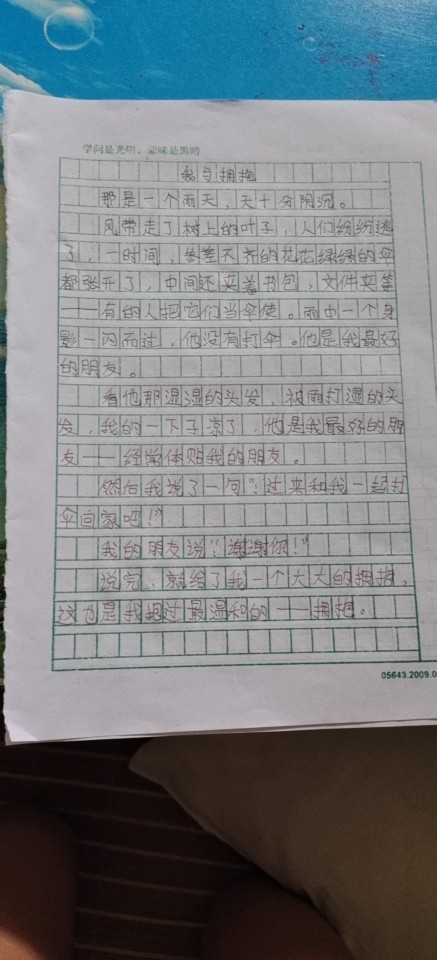 学问是光明，蒙昧是黑暗
我与拥抱
那是一个雨天，天十分阴沉。
风带走了树上的叶子，人们纷纷逃
了，一时间，参差不齐的花花绿绿的伞
都张开了，中间还夹着书包，文件夹等
——有的人把它们当伞使。雨中一个身
影一闪而过，他没有打伞。他是我最好
的朋友。
看他那湿湿的头发，被雨打湿的头
发，我的一下子凉了，他是我最好的朋
友——经常体贴我的朋友。
然后我说了一句“！过来和我一起打
伞回家吧！”
我的朋友说“谢谢你！”
说完，就给了我一个大大的拥抱，
这也是我抱过最温和的——拥抱。
05643.2009.0